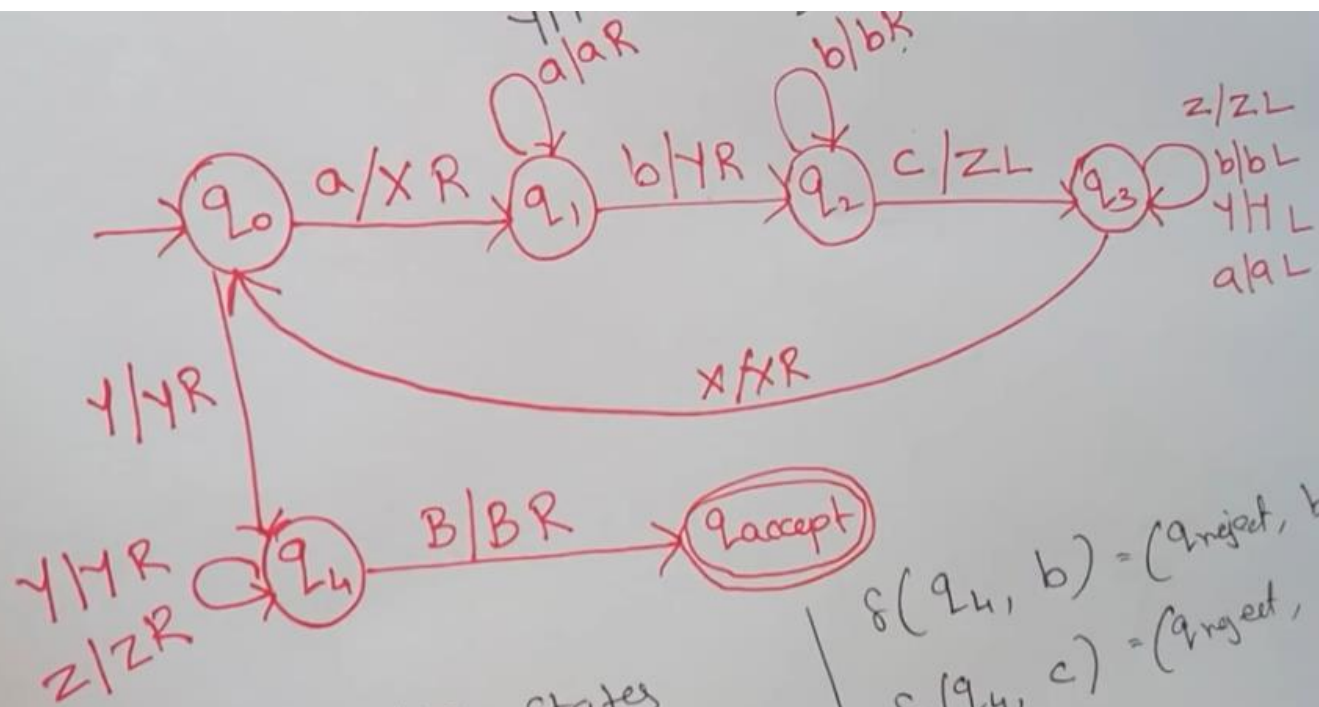 a/aR
b/bR
z/zL
b/bL
Y/Y L
a/aL
q0
a/XR
q1
b/YR
q2
c/ZL
q3
X/XR
Y/YR
Y/YR
z/zR
q4
B/BR
qaccept
δ(q4, b) = (qreject, b
δ(q4, c) = (qreject,
States